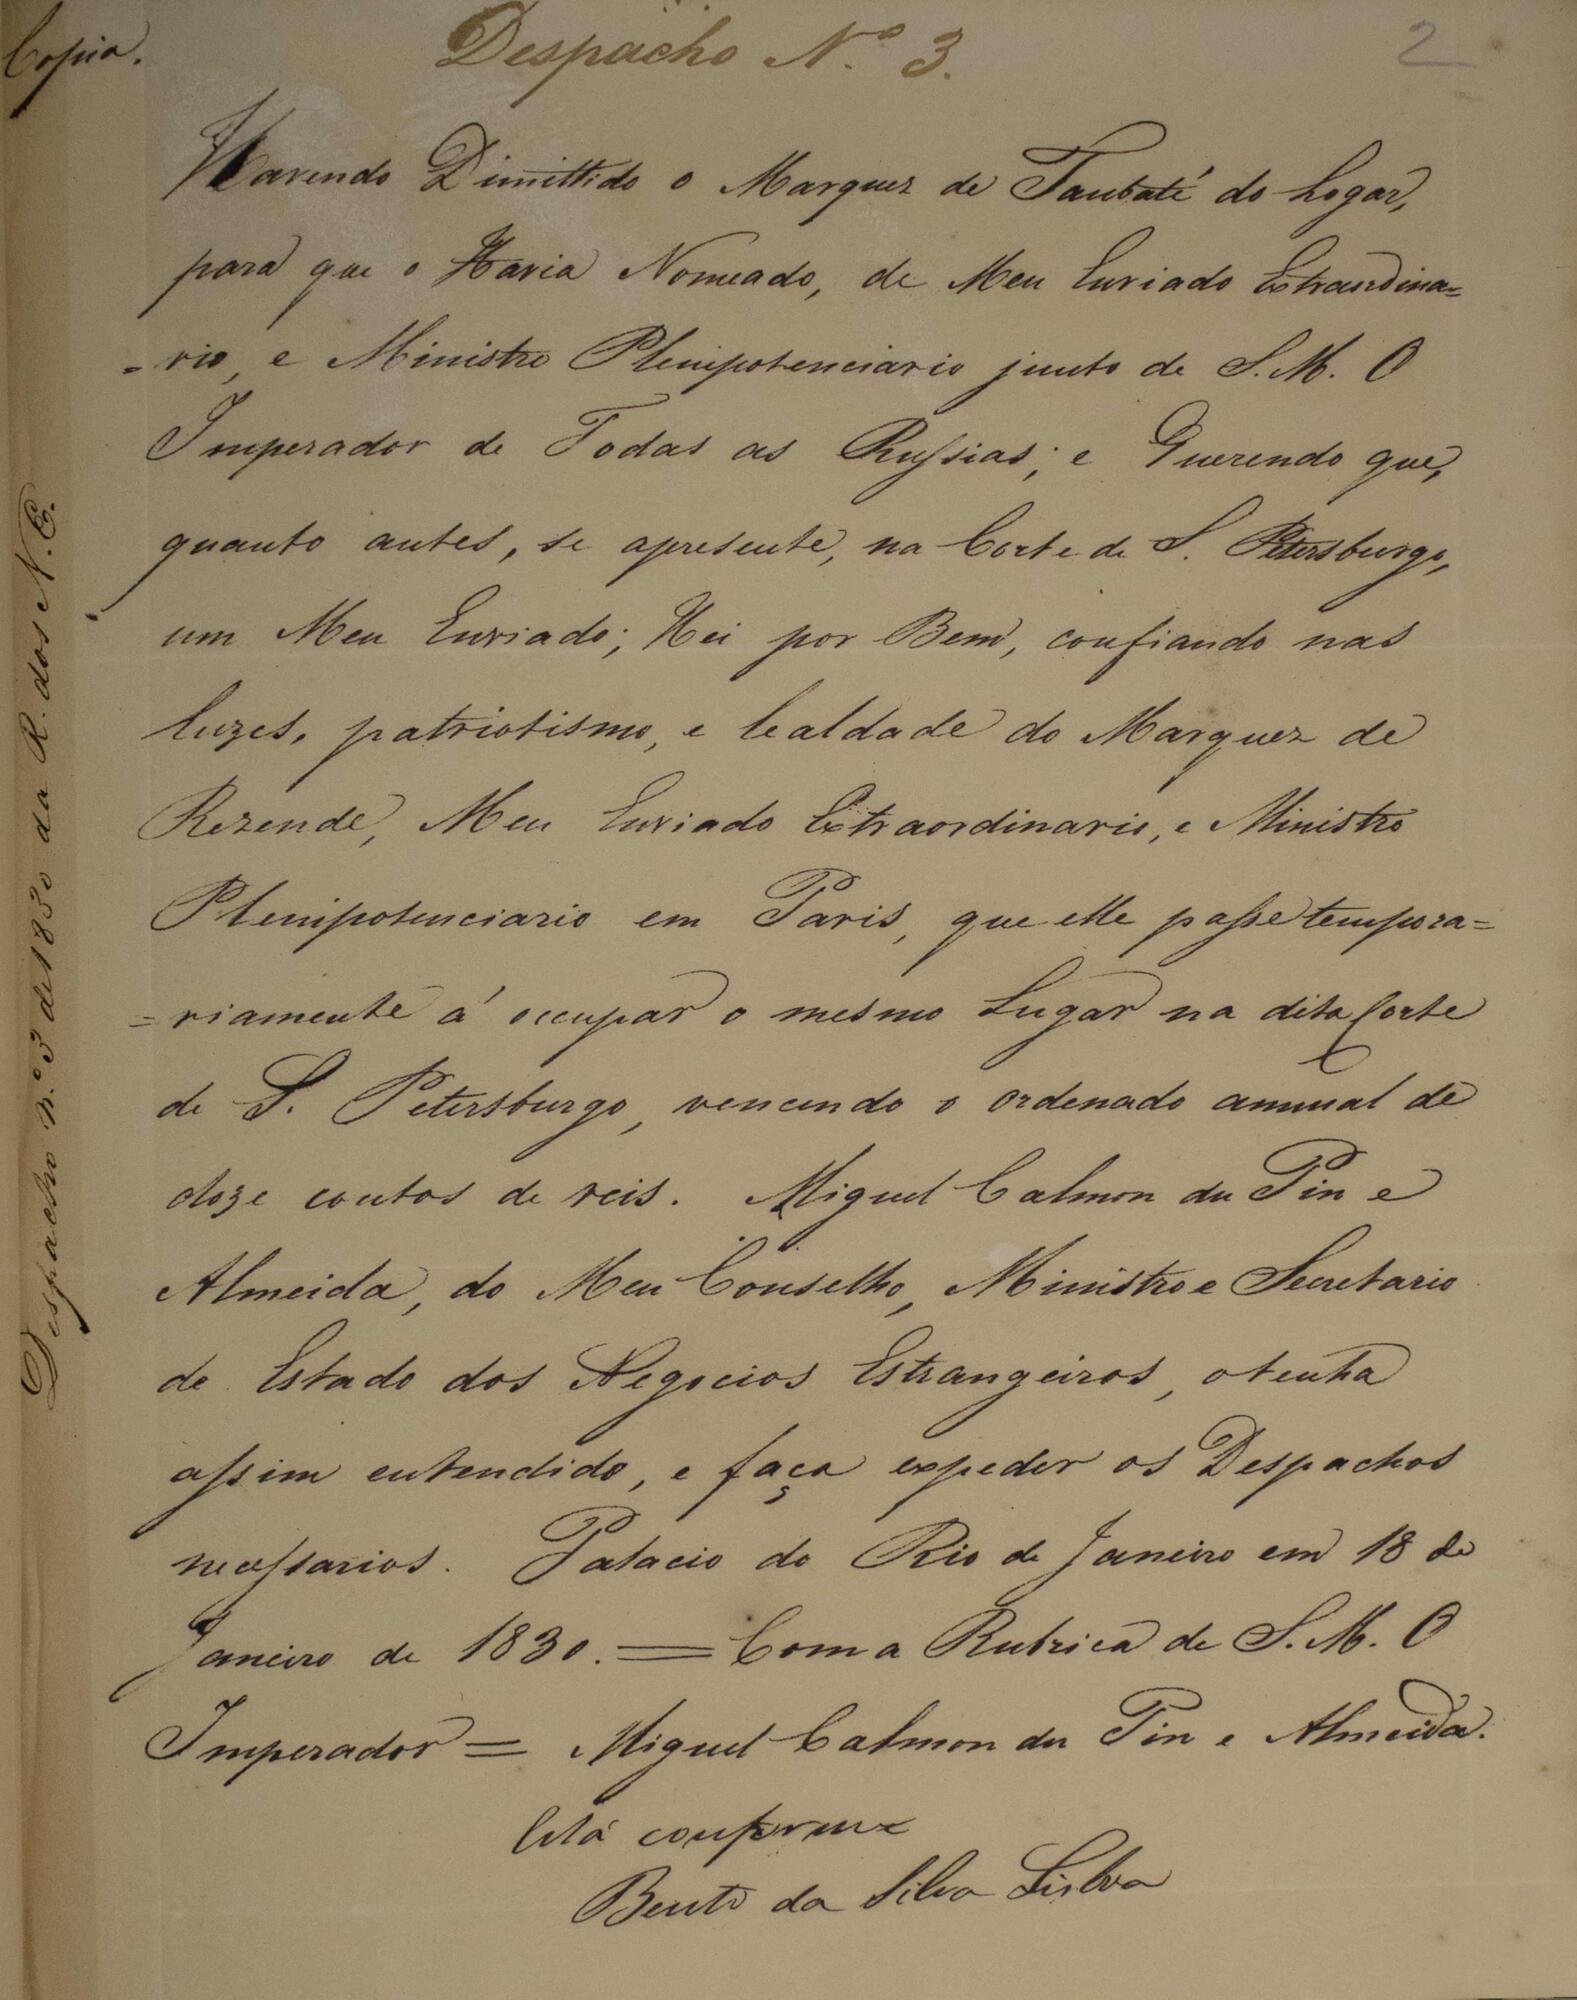 Copia.
Despacho N.º 3.
2
Havendo Dimittido o Marquez de Taubaté do Logar,
para que o Havia Nomeado, de Meu Enviado Extraordina=
=rio, e Ministro Plenipotenciario junto de S. M. O
Imperador de Todas as Russias; e Querendo que,
quanto antes, se apresente, na Corte de S. Petersburgo,
um Meu Enviado; Hei por Bem, confiando nas
luzes, patriotismo, e lealdade do Marquez de
Rezende, Meu Enviado Extraordinario, e Ministro
Plenipotenciario em Paris, que elle passe tempora=
=riamente á occupar o mesmo Lugar na dita Corte
de S. Petersburgo, vencendo o ordenado annual de
doze contos de reis. Miguel Calmon du Pin e
Almeida, do Meu Conselho, Ministro e Secretario
de Estado dos Negocios Estrangeiros, o tenha
assim entendido, e faça expedir os Despachos
necessarios. Palacio do Rio de Janeiro em 18 de
Janeiro de 1830. = Com a Rubrica de S. M. O
Imperador = Miguel Calmon du Pin e Almeida.
Está conforme
Bento da Silva Lisboa
Despacho n.º 3 de 1830 da R. dos N. E.